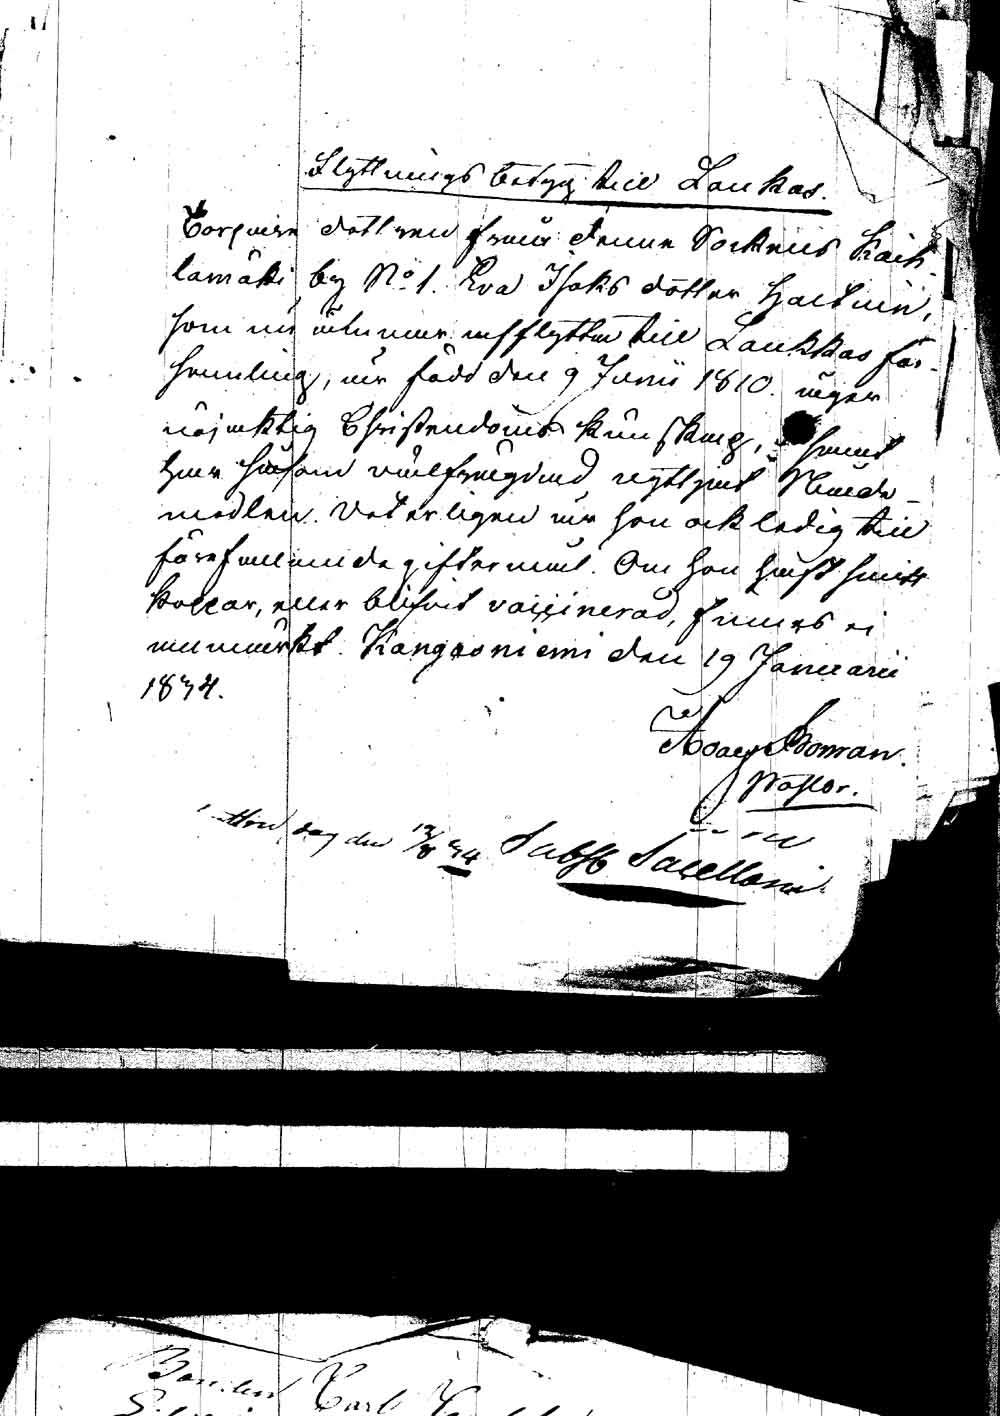 Flyttnings betyg till Laukas.
Torpare dottren från denna Sockens Kaih-
lamäki by No 1. Eva Isaks dotter Hartuin,
som nu ämnar afflytta till Laukkas för-
samling, är född den 9 Junii 1810. äger
nöjaktig Christendoms kunskap, samt
har såsom välfrägdad nyttjat Nåde-
medlen. Veterligen är hon ock ledig till
förefallande giftermål. Om hon haft smitt
koppor, eller blifvit vaccinerad, finnes ei
anmärkt. Kangasniemi den 19 Januarii
1834.
Adolf Boman.
Pastor.
dag den 12/8 34
Sacellani
Bonden Carl